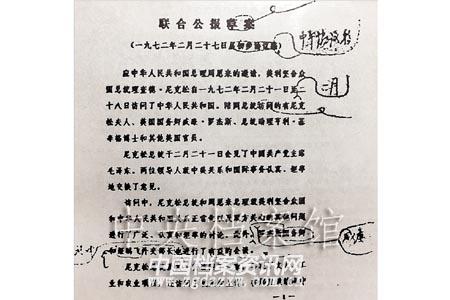 联合公报草案
(一九七二年二月二十七日
中午协议稿
应中华人民共和国总理周恩来的邀请，美利坚合众
国总统理查德·尼克松自一九七二年二月二十一日至二
二月
十八日访问了中华人民共和国。陪同总统访问的有尼克
松夫人、美国国务卿威廉·罗杰斯、总统助理亨利·基
辛格博士和其他美国官员。
尼克松总统于二月二十一日会见了中国共产党主席
毛泽东。两位领导人就中美关系和国际事务认真、坦率
地交换了意见。
访问中，尼克松总统和周恩来总理就美利坚合众国
和中华人民共和国关系正常化以及双方关心的其他问题
进行了广泛、认真和坦率的讨论。此外，
和姬鹏飞外交部长也进行了
尼克松总统
业和农业项目
中央档案馆
中国档案资讯网
www.zgdazxw.com.cn
-1-